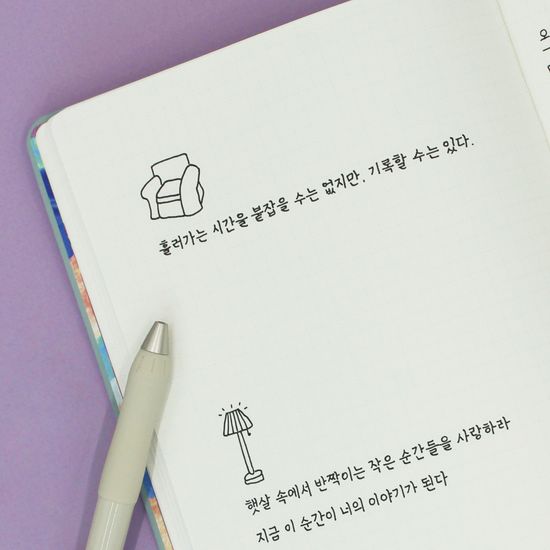 흘러가는 시간을 붙잡을 수는 없지만, 기록할 수는 있다.
햇살 속에서 반짝이는 작은 순간들을 사랑하라
지금 이 순간이 너의 이야기가 된다